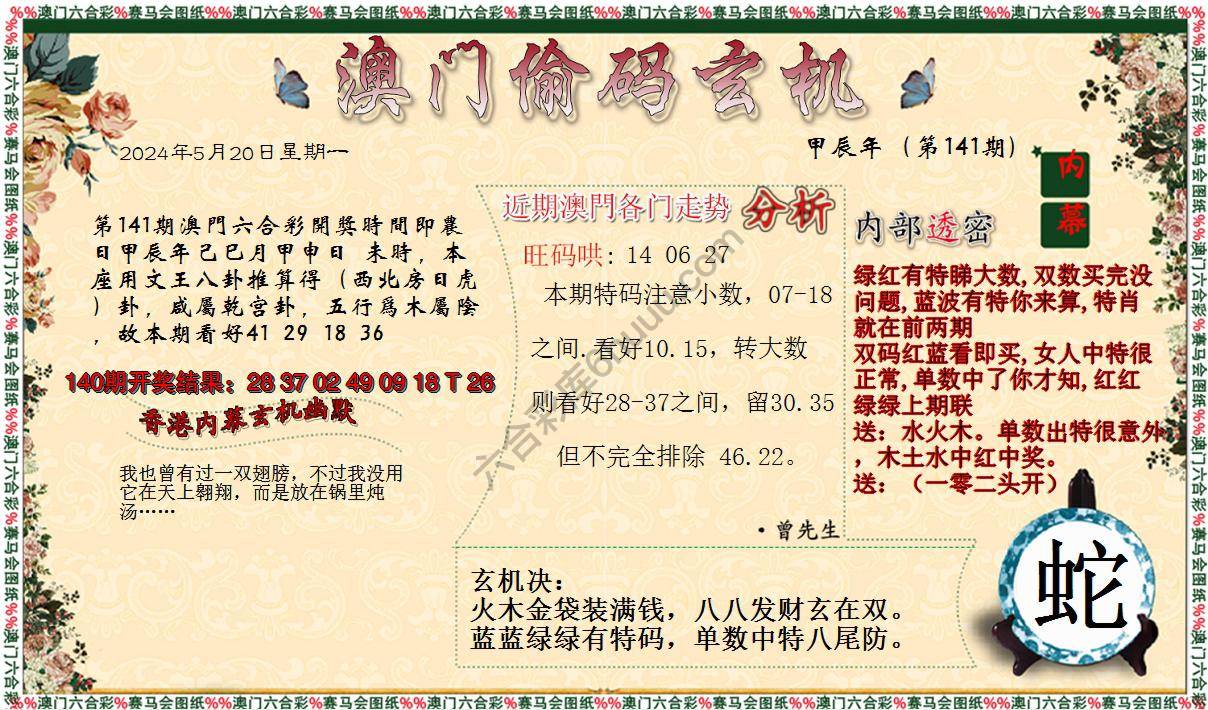 %%澳门六合彩%赛马会图纸%%澳门六合彩%赛马会图纸%%澳门六合彩%赛马会图纸%%澳门六合彩%赛马会图纸%%澳门六合彩%赛马会图纸%%澳门六合彩%赛马会图纸%%
澳门偷码玄机
2024年5月20日星期一
甲辰年（第141期）
内幕
第141期澳門六合彩開獎時間即農
日甲辰年己巳月甲申日 未時，本
座用文王八卦推算得（西北房日虎
）卦，咸屬乾宫卦，五行爲木屬陰
，故本期看好41 29 18 36
140期开奖结果：28 37 02 49 09 18 T 26
香港内幕玄机幽默
我也曾有过一双翅膀，不过我没用
它在天上翱翔，而是放在锅里炖
汤……
近期澳門各门走势 分析
旺码哄: 14 06 27
本期特码注意小数，07-18
之间.看好10.15，转大数
则看好28-37之间，留30.35
但不完全排除 46.22。
·曾先生
内部透密
绿红有特睇大数,双数买完没
问题,蓝波有特你来算,特肖
就在前两期
双码红蓝看即买,女人中特很
正常,单数中了你才知,红红
绿绿上期联
送：水火木。单数出特很意外
，木土水中红中奖。
送：（一零二头开）
玄机决：
火木金袋装满钱，八八发财玄在双。
蓝蓝绿绿有特码，单数中特八尾防。
蛇
%%澳门六合彩%赛马会图纸%%澳门六合彩%赛马会图纸%%澳门六合彩%赛马会图纸%%澳门六合彩%赛马会图纸%%澳门六合彩%赛马会图纸%%澳门六合彩%赛马会图纸%%